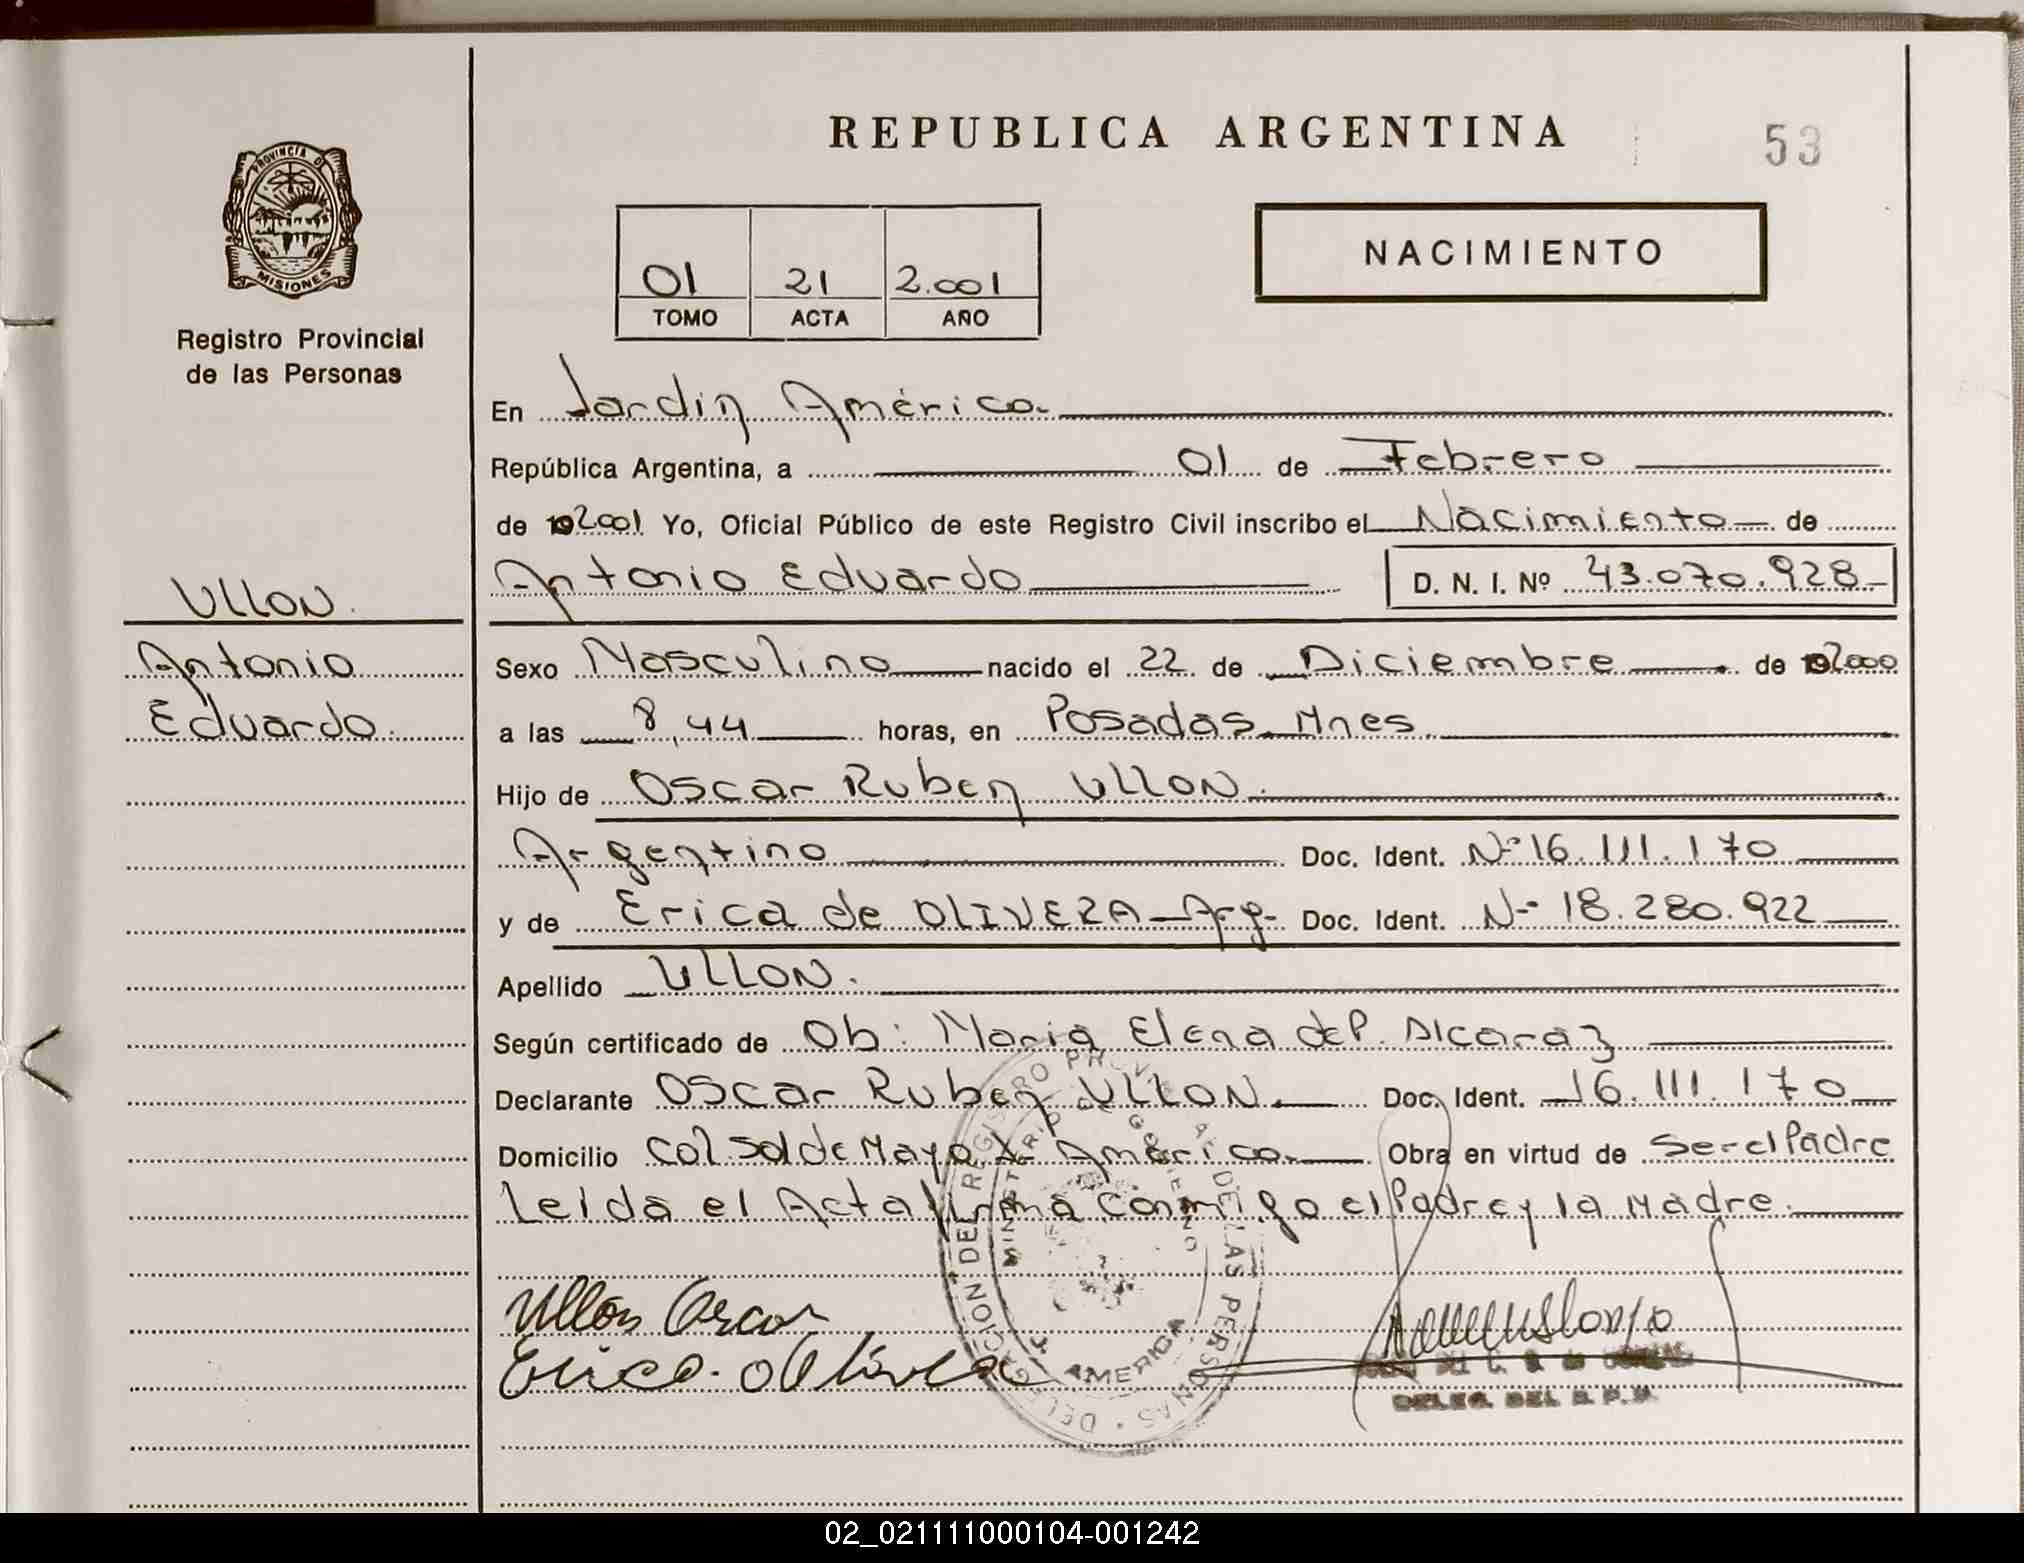 REPUBLICA ARGENTINA
53
PROVINCIA DE
MISIONES
Registro Provincial
de las Personas
01 21 2.001
TOMO ACTA AÑO
NACIMIENTO
En Jardin América.
República Argentina, a 01 de Febrero
de 192001 Yo, Oficial Público de este Registro Civil inscribo el Nacimiento de
Antonio Eduardo D. N. I. Nº 43.070.928
ULLON.
Antonio
Eduardo.
Sexo Masculino nacido el 22 de Diciembre de 192000
a las 8,44 horas, en Posadas Mnes.
Hijo de Oscar Ruben ULLON.
Argentino Doc. Ident. Nº 16.111.170
y de Erica de OLIVERA Arg. Doc. Ident. Nº 18.280.922
Apellido ULLON.
Según certificado de Ob: Maria Elena del P. Alcaraz
Declarante Oscar Ruben ULLON. Doc. Ident. 16.111.170
Domicilio Col. Sol de Mayo J. América. Obra en virtud de Ser el Padre
Leida el Acta firma conmigo el Padre y la Madre.
Ullon Oscar
Erica. Olivera
DELEGACION DEL REGISTRO PROVINCIAL DE LAS PERSONAS
MINISTERIO DE GOBIERNO
J. AMERICA
DELEG. DEL R. P. P.
02_021111000104-001242